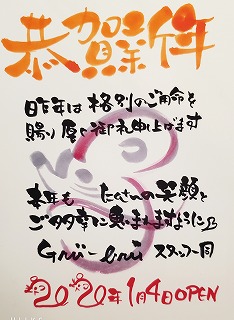 恭賀新年
昨年は格別のご用命を
賜り厚く御礼申し上げます
本年も たくさんの笑顔と
ご多幸に恵まれますように
Gru-bri スタッフ一同
2020年1月4日OPEN